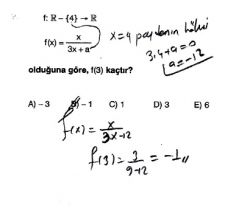 f: ℝ – {4} → ℝ
f(x) = x / (3x + a)
x = 4 paydanın kökü
3.4 + a = 0
a = -12
olduğuna göre, f(3) kaçtır?
A) – 3 B) – 1 C) 1 D) 3 E) 6
f(x) = x / (3x-12)
f(3) = 3 / (9-12) = -1,,